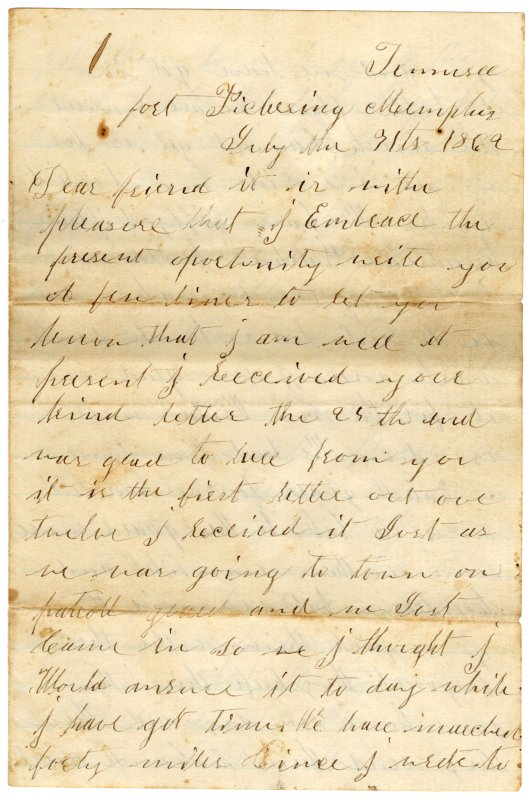 1
Tennisee
fort Pickering Memphis
July the 31ts 1862
Dear friend it is with
pleasure that j Embrace the
present oportunity write you
A few lines to let you
know that j am well at
present j Received your
kind letter the 25 th and
was glad to heer from you
it is the first letter out ove
twelve j received it Jost as
we was going to town on
patroll guard and we Jost
came in so j thought j
World answe it to day while
j have got time We have marched
forty miles Since j wrote to